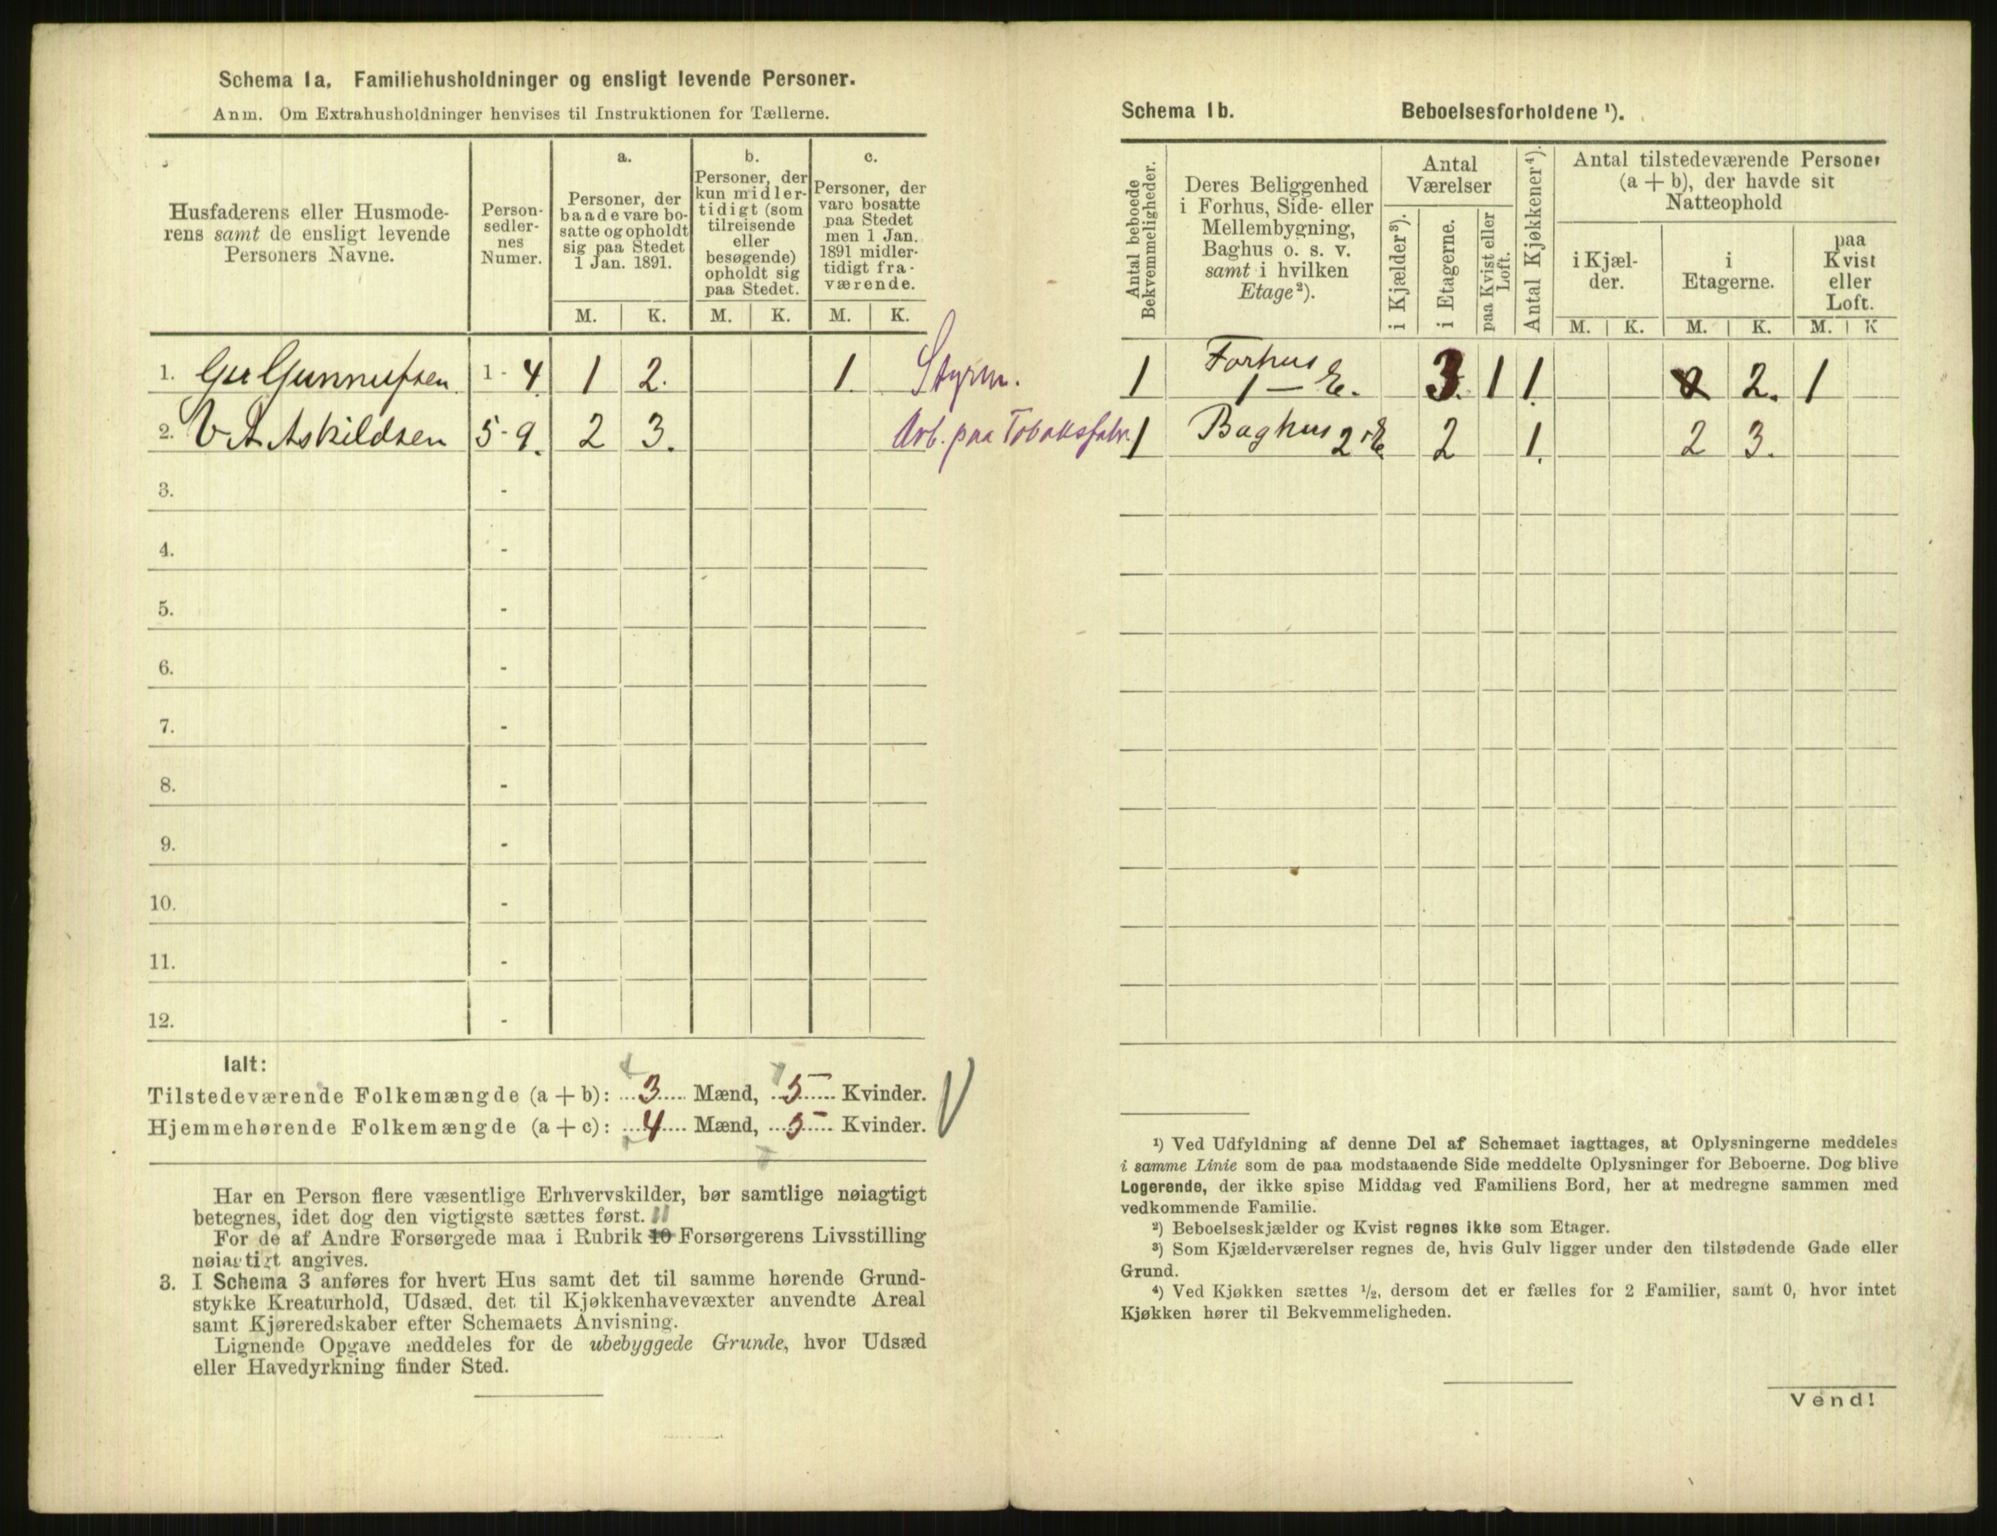 Schema 1a. Familiehusholdninger og ensligt levende Personer.
Anm. Om Extrahusholdninger henvises til Instruktionen for Tællerne.
Husfaderens eller Husmode-
rens samt de ensligt levende
Personers Navne.
Person-
sedler-
nes
Numer.
a.
Personer, der
baade vare bo-
satte og opholdt
sig paa Stedet
1 Jan. 1891.
b.
Personer, der
kun midler-
tidigt (som
tilreisende
eller
besøgende)
opholdt sig
paa Stedet.
c.
Personer, der
vare bosatte
paa Stedet
men 1 Jan.
1891 midler-
tidigt fra-
værende.
M. K. M. K. M. K.
1. Gunnufsen 1 - 4. 1 2. 1. Styrm.
2. V A Askildsen 5 - 9. 2 3. Arb. paa Tobaksfabr.
3. -
4. -
5. -
6. -
7. -
8. -
9. -
10. -
11. -
12. -
Ialt:
Tilstedeværende Folkemængde (a + b): 3 Mænd, 5 Kvinder.
Hjemmehørende Folkemængde (a + c): 4 Mænd, 5 Kvinder.
Har en Person flere væsentlige Erhvervskilder, bør samtlige nøiagtigt
betegnes, idet dog den vigtigste sættes først.
For de af Andre Forsørgede maa i Rubrik 10 Forsørgerens Livsstilling 11
nøiagtigt angives.
3. I Schema 3 anføres for hvert Hus samt det til samme hørende Grund-
stykke Kreaturhold, Udsæd, det til Kjøkkenhavevæxter anvendte Areal
samt Kjøreredskaber efter Schemaets Anvisning.
Lignende Opgave meddeles for de ubebyggede Grunde, hvor Udsæd
eller Havedyrkning finder Sted.
Schema 1b. Beboelsesforholdene ¹).
Antal beboede
Bekvemmeligheder.
Deres Beliggenhed
i Forhus, Side- eller
Mellembygning,
Baghus o. s. v.
samt i hvilken
Etage²).
Antal
Værelser
i Kjælder³).
i Etagerne.
paa Kvist eller
Loft.
Antal Kjøkkener⁴).
Antal tilstedeværende Personer
(a + b), der havde sit
Natteophold
i Kjæl-
der.
i
Etagerne.
paa
Kvist
eller
Loft.
M. K. M. K. M. K
1 Forhus 1 - E. 3. 1 1. 2. 1
1 Baghus 2 E 2 1. 2 3.
¹) Ved Udfyldning af denne Del af Schemaet iagttages, at Oplysningerne meddeles
i samme Linie som de paa modstaaende Side meddelte Oplysninger for Beboerne. Dog blive
Logerende, der ikke spise Middag ved Familiens Bord, her at medregne sammen med
vedkommende Familie.
²) Beboelseskjælder og Kvist regnes ikke som Etager.
³) Som Kjælderværelser regnes de, hvis Gulv ligger under den tilstødende Gade eller
Grund.
⁴) Ved Kjøkken sættes ½, dersom det er fælles for 2 Familier, samt 0, hvor intet
Kjøkken hører til Bekvemmeligheden.
Vend!